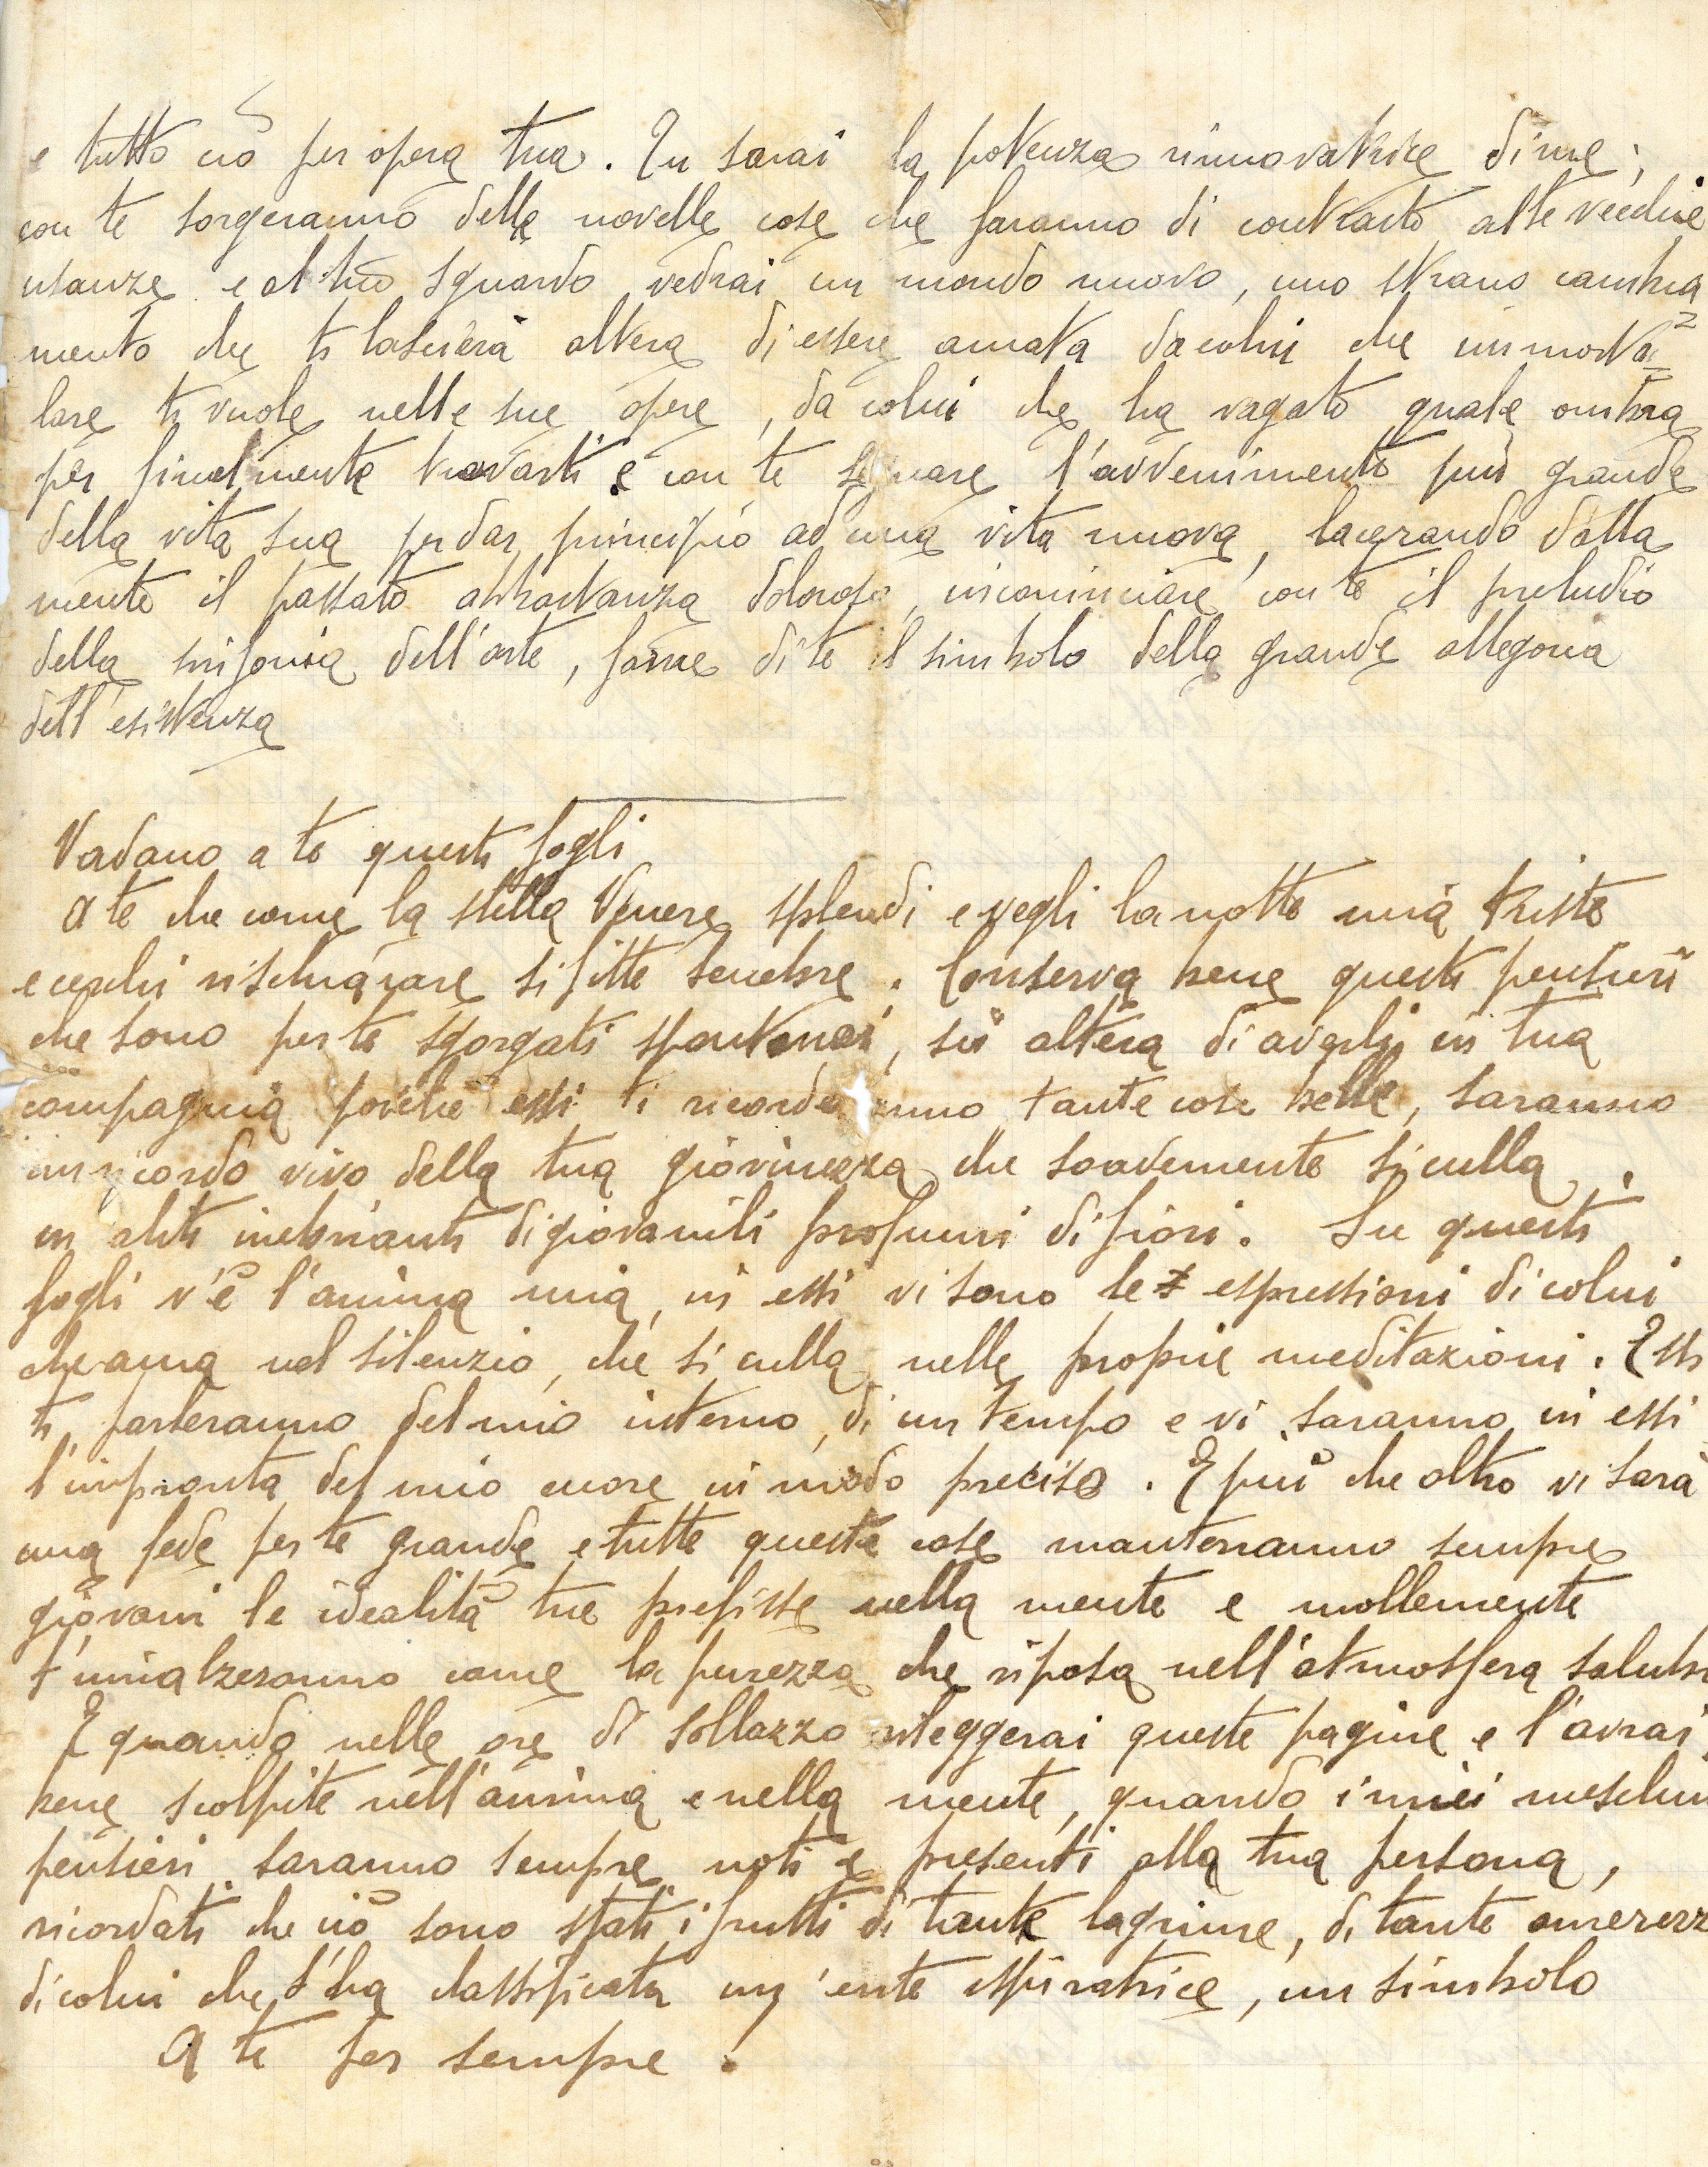 e tutto ciò per opera tua. Tu sarai la potenza rinnovatrice di me;
con te sorgeranno delle novelle cose che faranno di contrasto alle vecchie
usanze e al tuo sguardo vedrai un mondo nuovo, uno strano cambia
mento che ti lascierà altera di essere amata da colui che immorta=
lare ti vuole nelle sue opere, da colui che ha vagato quale ombra
per finalmente trovarti e con te segnare l'avvenimento più grande
della vita sua per dar principio ad una vita nuova, lacerando dalla
mente il passato abbastanza doloroso, incominciare con te il preludio
della sinfonia dell'arte, farne di te il simbolo della grande allegoria
dell'esistenza
Vadano a te questi fogli
A te che come la stella Venere splendi e vegli la notte mia triste
e cerchi rischiarare si fitte tenebre. Conserva bene questi pensieri
che sono per te sgorgati spontanei, sii altera di averli in tua
compagnia poiché essi ti ricorderanno tante cose belle, saranno
un ricordo vivo della tua giovinezza che soavemente si culla,
in aliti inebrianti di giovanili profumi di fiori. Su questi
fogli v'è l'anima mia, in essi vi sono le espressioni di colui
che ama nel silenzio, che si culla nelle proprie meditazioni. Essi
ti parleranno del mio interno, di un tempo e vi saranno in essi
l'impronta del mio cuore in modo preciso. E più che altro vi sarà
una fede per te grande e tutte queste cose manterranno sempre
giovani le idealità tue prefisse nella mente e mollemente
t'inialzeranno come la purezza che riposa nell'atmosfera salubr
E quando nelle ore di sollazzo rileggerai queste pagine e l'avrai
bene scolpite nell'anima e nella mente, quando i miei meschin
pensieri saranno sempre noti e presenti alla tua persona,
ricordati che ciò sono stati i frutti di tante lagrime, di tante amerezz
di colui che t'ha classificata un'ente ispiratrice, un simbolo
A te per sempre.